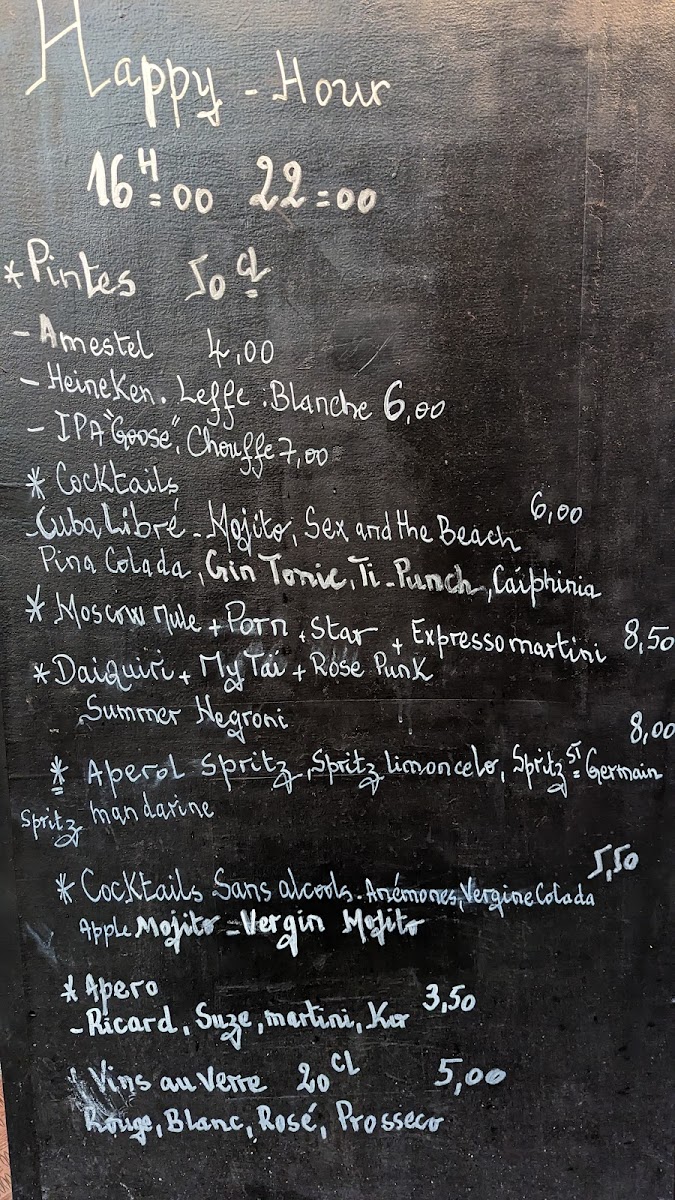 Happy - Hour
16H=00 22=00
*Pintes 50 cl
- Amestel 4,00
- Heineken. Leffe. Blanche 6,00
- IPA "Goose", Chouffe 7,00
* Cocktails
Cuba Libré - Mojito, Sex and the Beach 6,00
Pina Colada, Gin Tonic, Ti-Punch, Caiphinia
* Moscow Mule + Porn + Star + Expresso martini 8,50
* Daiquiri + My Tai + Rose Punk
Summer Negroni
* Aperol Spritz, Spritz limoncelo, Spritz ST Germain 8,00
Spritz mandarine
* Cocktails Sans alcools. Anémones, Vergine Colada 5,50
Apple Mojito - Vergin Mojito
* Apero
- Ricard, Suze, martini, Kir 3,50
* Vins au Verre 20 CL 5,00
Rouge, Blanc, Rosé, Prosseco